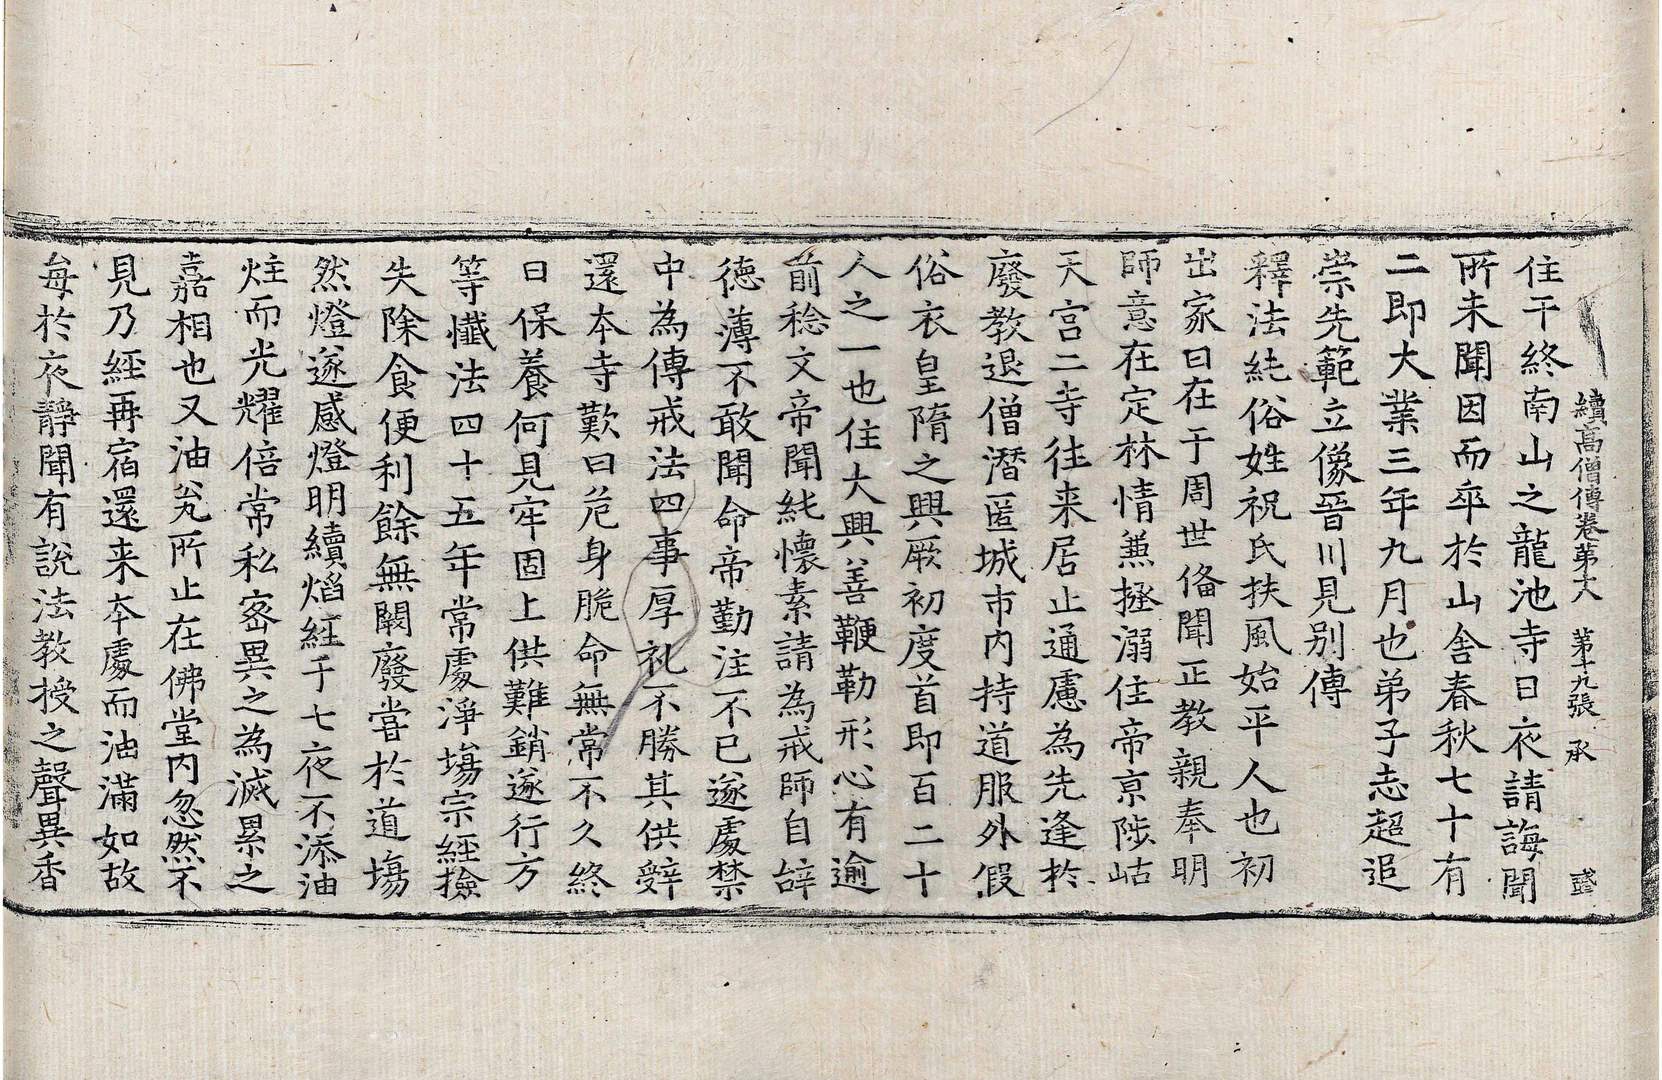 續高僧傳卷第六　第十九張　承
住于終南山之龍池寺日夜請誨聞
所未聞因而卒於山舍春秋七十有
二即大業三年九月也弟子志超追
崇先範立像晉川見別傳
釋法純俗姓祝氏扶風始平人也初
出家日在于周世俻聞正教親奉明
師意在定林情兼拯溺住帝京陟岵
天宮二寺往来居止通慮為先逢於
廢教退僧潛匿城市內持道服外假
俗衣皇隋之興厥初度首即百二十
人之一也住大興善鞭勒形心有逾
前稔文帝聞純懷素請為戒師自辝
德薄不敢聞命帝勤注不已遂處禁
中為傳戒法四事厚礼不勝其供辤
還本寺歎曰危身脆命無常不久終
日保養何見牢固上供難銷遂行方
等懺法四十五年常處淨塲宗經撿
失除食便利餘無闕廢嘗於道塲
然燈遂感燈明續焰經于七夜不添油
炷而光耀倍常私密異之為滅累之
嘉相也又油瓮所止在佛堂內忽然不
見乃經再宿還来本處而油滿如故
每於夜靜聞有說法教授之聲異香